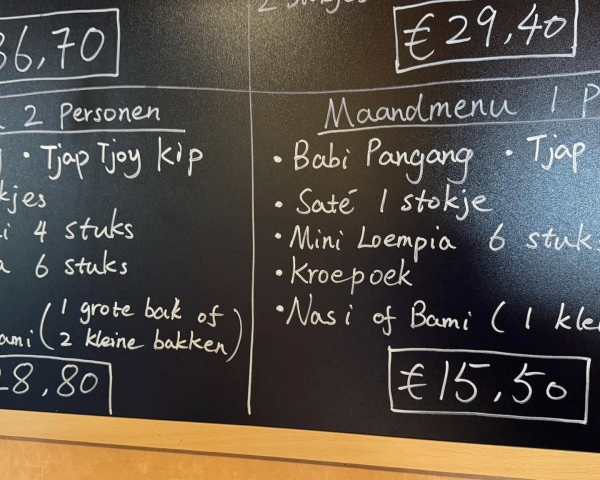 36,70
2 Personen
· Tjap Tjoy kip
kjes
i 4 stuks
a 6 stuks
ami (1 grote bak of
2 kleine bakken)
28,80
€29,40
Maandmenu 1 P
· Babi Pangang · Tjap
· Saté 1 stokje
· Mini Loempia 6 stuks
· Kroepoek
· Nasi of Bami ( 1 klei
€15,50